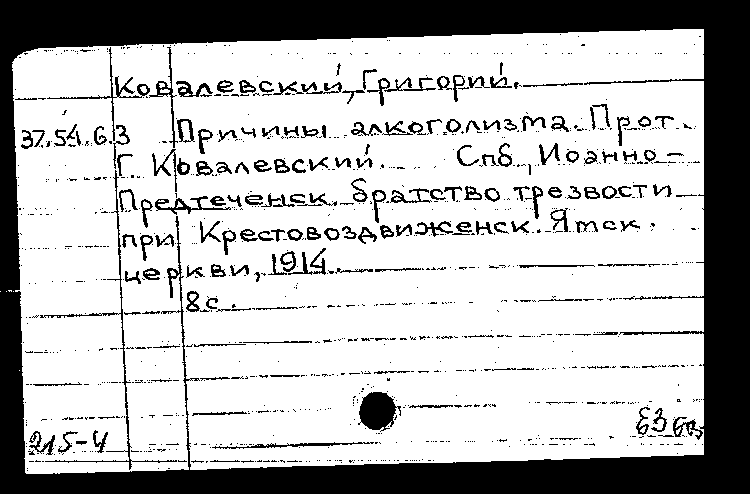 Ковалевский, Григорий.
37.54.6.3 Причины алкоголизма. Прот.
Г. Ковалевский. Спб, Иоанно-
Предтеченск. братство трезвости
при Крестовоздвиженск. Ямск.
церкви, 1914.
8с.
215-4